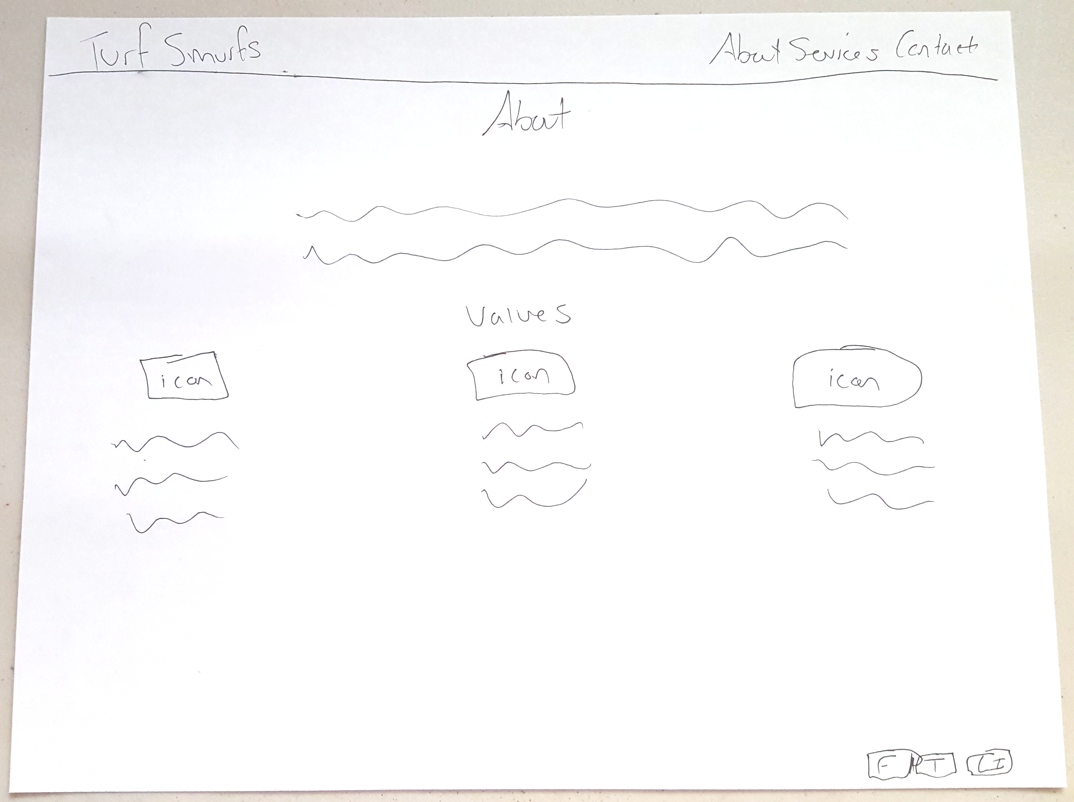 Turf Smurfs
About Services Contact
About
Values
icon
icon
icon
F
T
LI